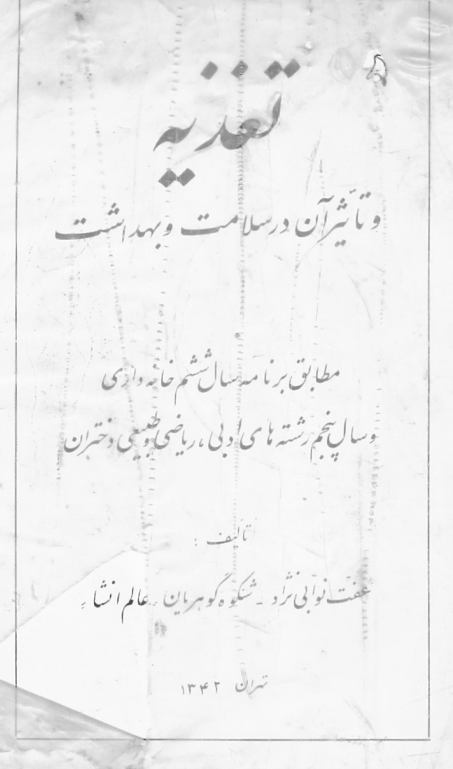 تغذیه
و تأثیر آن در سلامت و بهداشت
مطابق برنامه سال ششم خانه داری
و سال پنجم رشته های ادبی، ریاضی و طبیعی دختران
تألیف :
عفت نوابی نژاد - شکوه گوهریان - عالم انشاء
تهران ۱۳۴۲